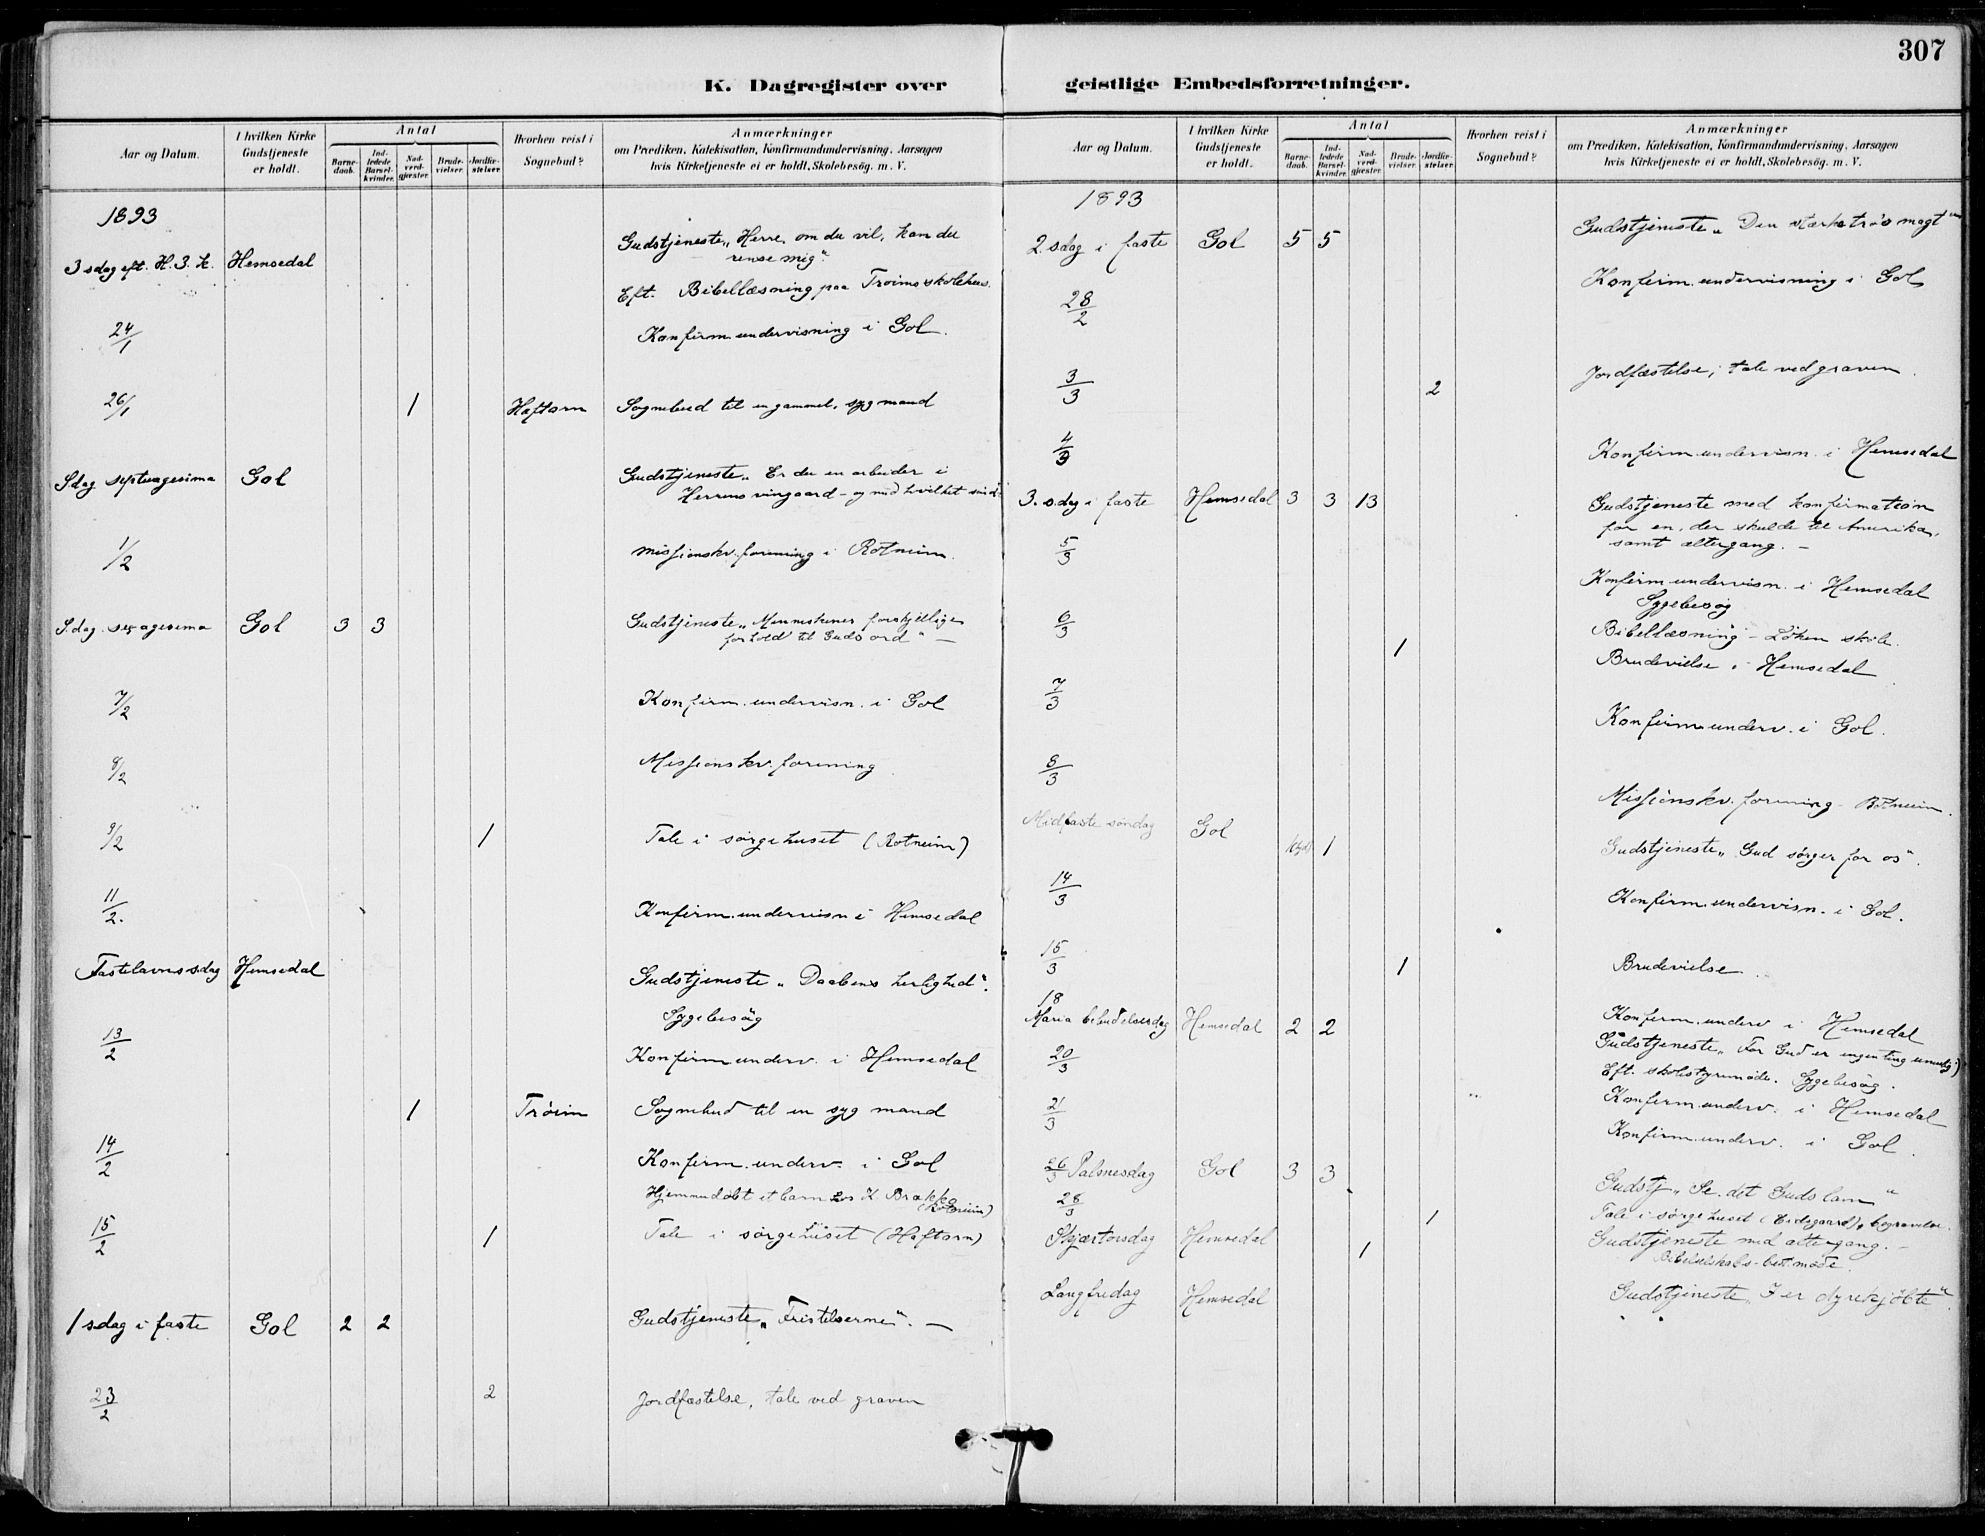 307
K. Dagregister over geistlige Embedsforretninger.
Aar og Datum. I hvilken Kirke Gudstjeneste er holdt. Antal Barnedaab. Indledede Barselkvinder. Nadverdgjæster. Brudevielser. Jordfæstelser. Hvorhen reist i Sognebud? Anmærkninger om Prædiken, Katekisation, Konfirmandundervisning, Aarsagen hvis Kirketjeneste ei er holdt, Skolebesög. m. V.
1893
3 sdag eft. H. 3. k. Hemsedal Gudstjeneste „Herre, om du vil, kan du
rense mig“
Eft. Bibellæsning paa Troims skolehus.
24/1 Konfirm. undervisning i Gol.
26/1 1 Haftorn Sognebud til en gammel, syg mand
Sdag septuagesima Gol Gudstjeneste „Er du en arbeider i
Herrens vingaard – og med hvilket sind“
1/2 Missionskv. forening i Rotneim.
S.dag sexagesima Gol 3 3 Gudstjeneste „Menneskenes forskjellige
forhold til Guds ord“ –
7/2 Konfirm. undervisn. i Gol
8/2 Missionskv. forening
9/2 1 Tale i sørgehuset (Rotneim)
11/2. Konfirm. undervisn i Hemsedal
Fastelavnssdag Hemsedal Gudstjeneste „Daabens herlighed“.
Sygebesög
13/2 Konfirm underv. i Hemsedal
1 Trøim Sognebud til en syg mand
14/2 Konfirm. underv. i Gol
Hjemmedøbt et barn hos K. Brakke
(Rotneim)
15/2 1 Tale i sörgehuset (Haftorn)
1 sdag i faste Gol 2 2 Gudstjeneste „Fristelserne“. –
23/2 2 Jordfæstelse, tale ved graven
Aar og Datum. I hvilken Kirke Gudstjeneste er holdt. Antal Barnedaab. Indledede Barselkvinder. Nadverdgjæster. Brudevielser. Jordfæstelser. Hvorhen reist i Sognebud? Anmærkninger om Prædiken, Katekisation, Konfirmandundervisning, Aarsagen hvis Kirketjeneste ei er holdt, Skolebesög. m. V.
1893
2 sdag i faste Gol 5 5 Gudstjeneste „Den stærke trøs magt“
28/2 Konfirm. undervisning i Gol
3/3 2 Jordfæstelse; tale ved graven.
4/3 Konfirm undervisn. i Hemsedal
3. sdag i faste Hemsedal 3 3 13 Gudstjeneste med konfirmation
for en, der skulde til Amerika,
samt altergang. –
5/3
Konfirm undervisn. i Hemsedal
Sygebesøg
6/3 Bibellæsning – Løken skole.
1 Brudevielse i Hemsedal
7/3 Konfirm. underv. i Gol.
8/3 Missionskv. forening – Rotneim.
Midfaste söndag Gol 1 Gudstjeneste „Gud sørger for os“.
14/3 Konfirm. undervisn. i Gol.
15/3 1 Brudevielse
18 Konfirm. underv i Hemsedal
Maria bebudelsesdag Hemsedal 2 2 Gudstjeneste „For Gud er ingenting umulig“)
Eft. skolestyremøde. Sygebesög.
20/3 Konfirm. underv. i Hemsedal
21/3 Konfirm. underv. i Gol.
26/3 Palmesdag Gol 3 3 Gudstj „Se det Guds lam“
28/3 1 Tale i sørgehuset (Eidsgaard), begravelse.
Skjærtorsdag Hemsedal 1 Gudstjeneste med altergang. –
Bibelselskabs-best.møde.
Langfredag Hemsedal Gudstjeneste „I er dyrekjöbte“